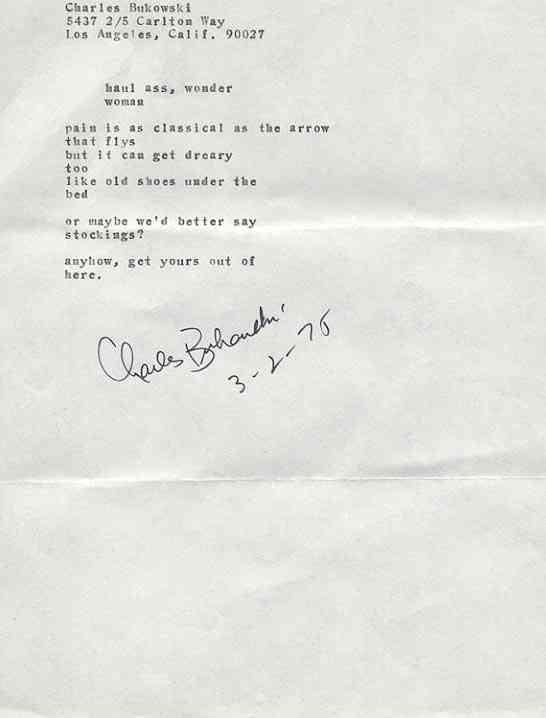 Charles Bukowski
5437 2/5 Carlton Way
Los Angeles, Calif. 90027
haul ass, wonder
woman
pain is as classical as the arrow
that flys
but it can get dreary
too
like old shoes under the
bed
or maybe we'd better say
stockings?
anyhow, get yours out of
here.
Charles Bukowski
3-2-75